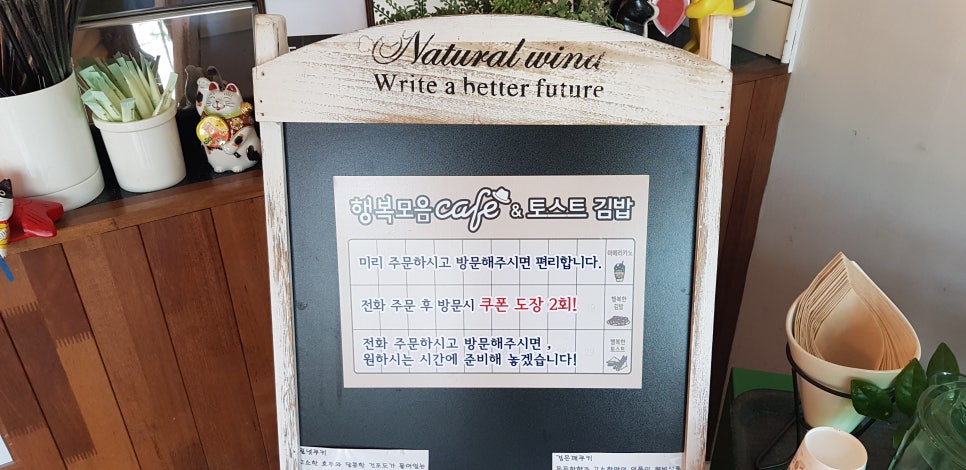 Natural wind
Write a better future
행복모음 cafe & 토스트 김밥
미리 주문하시고 방문해주시면 편리합니다.
아메리카노
전화 주문 후 방문시 쿠폰 도장 2회!
행복한
김밥
전화 주문하시고 방문해주시면 ,
원하시는 시간에 준비해 놓겠습니다!
행복한
토스트
검은깨쿠키